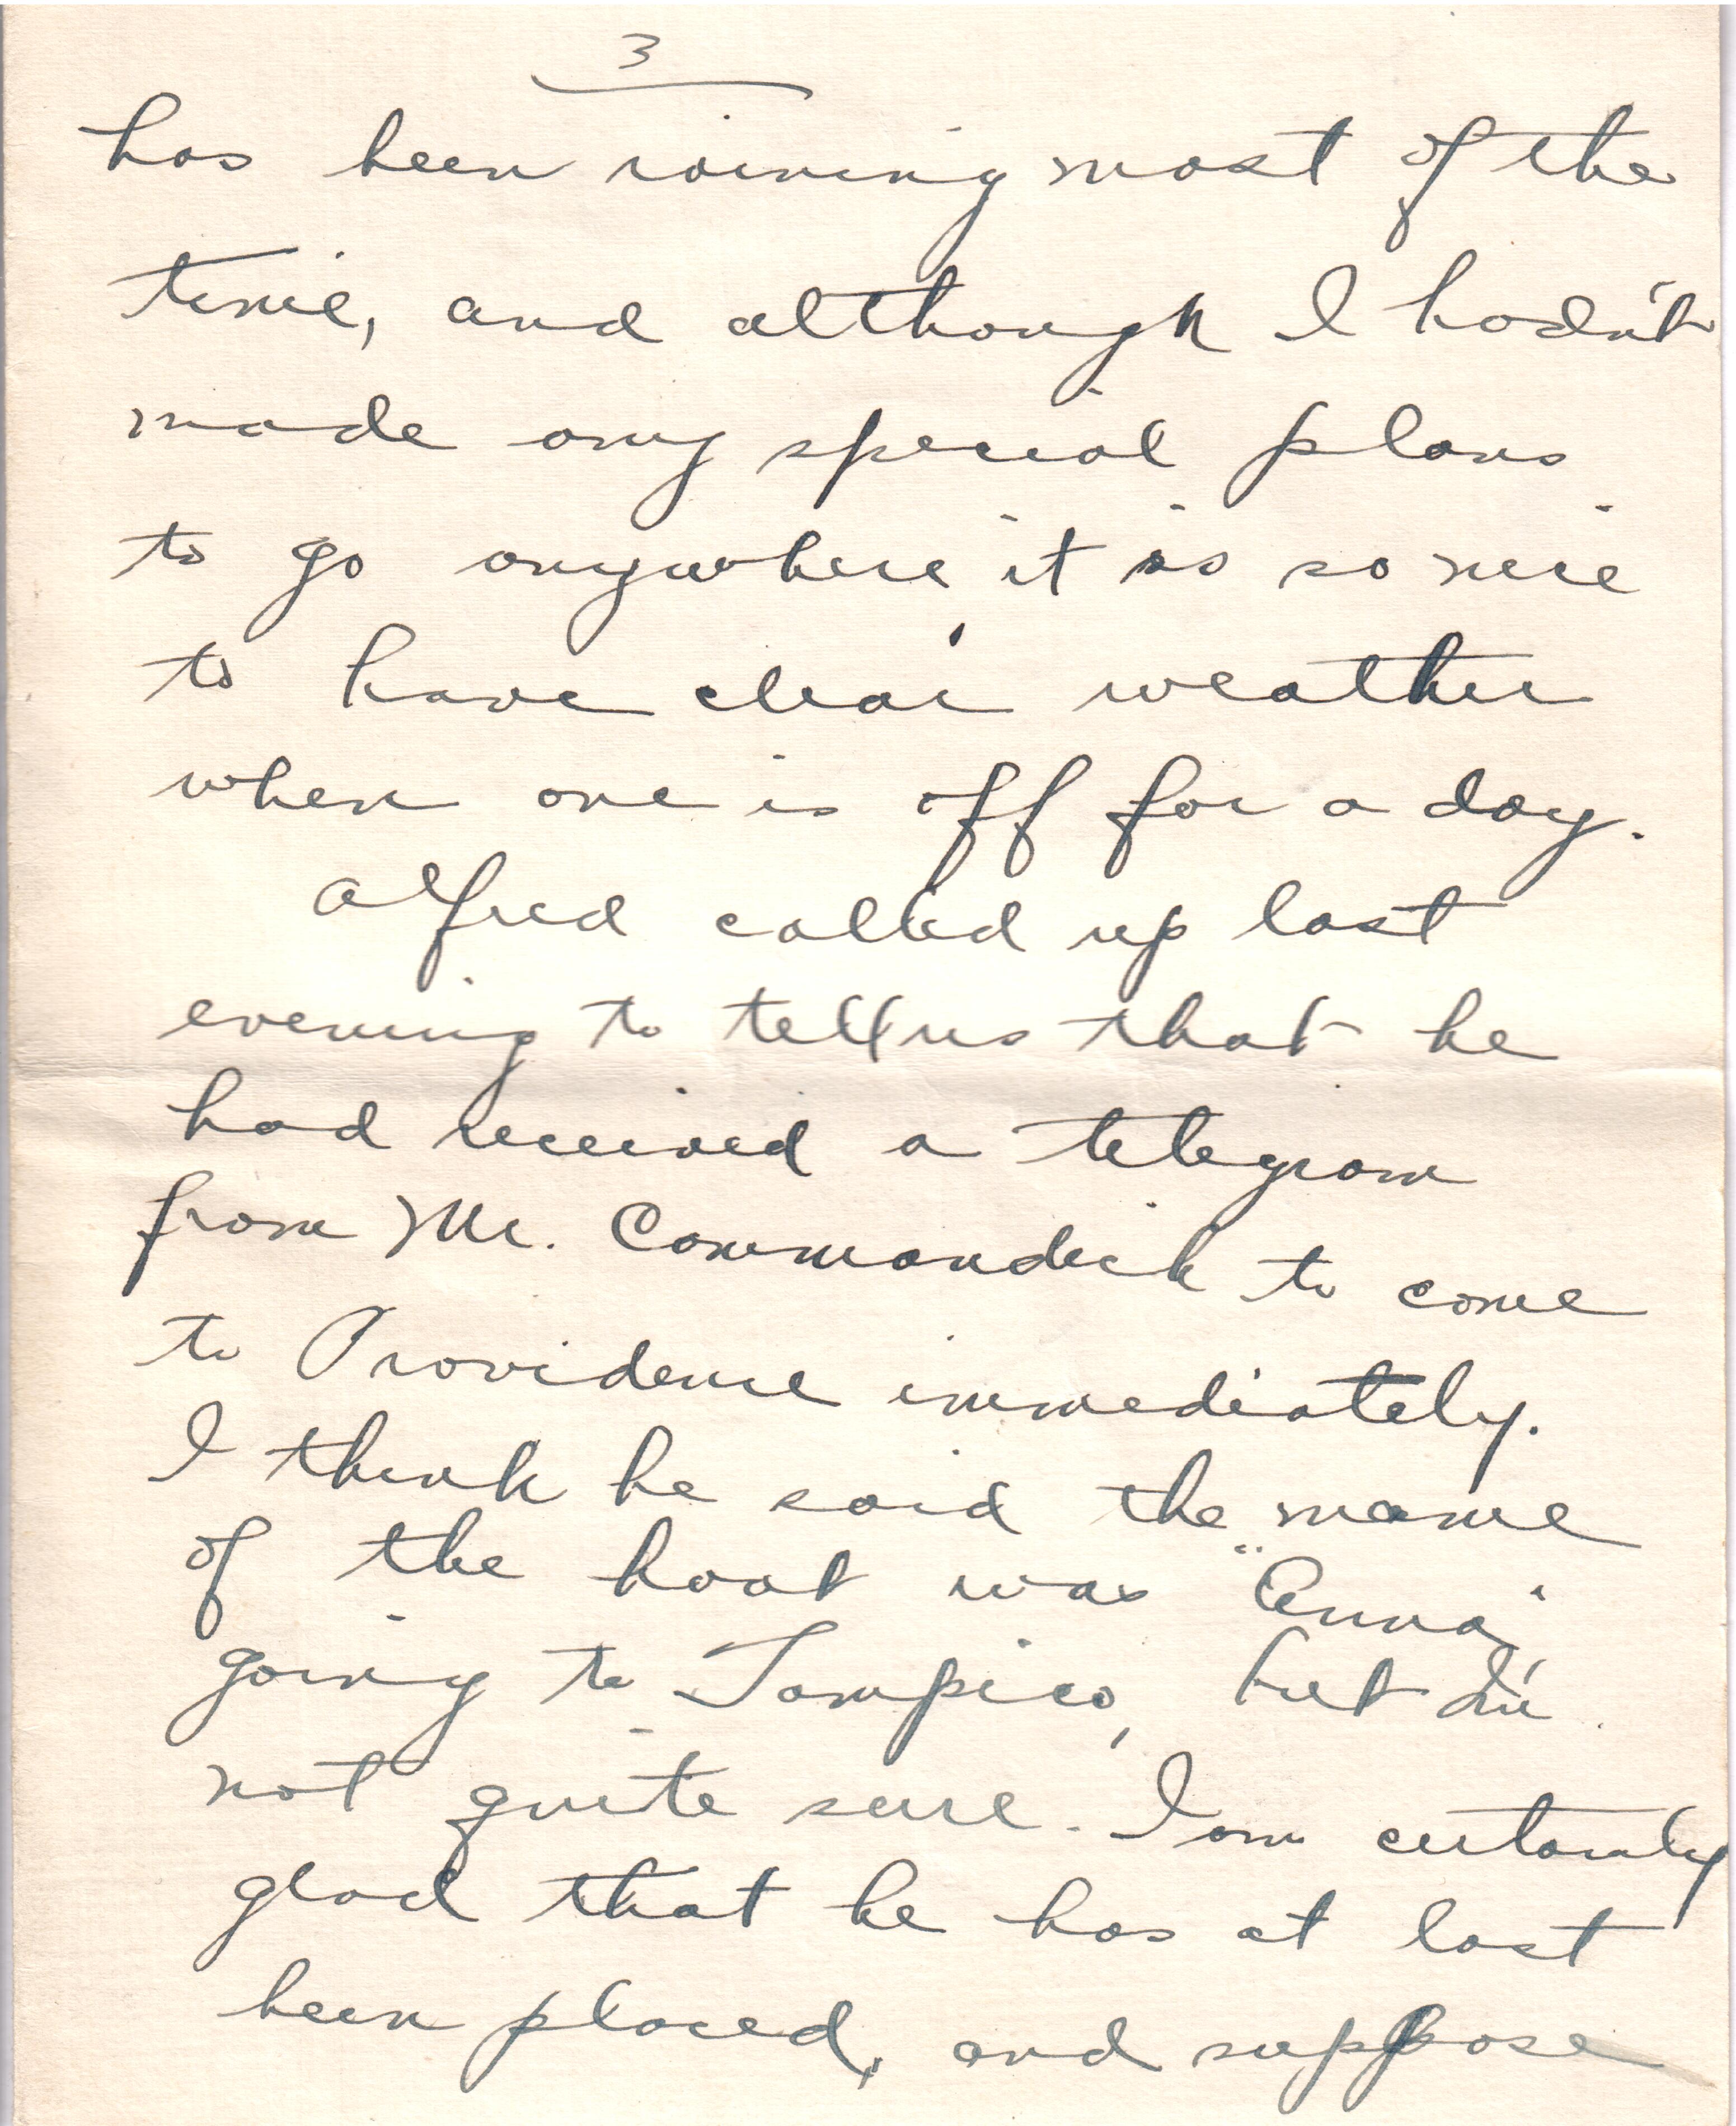 3
has been raining most of the
time, and although I hadn't
made any special plans
to go anywhere, it is so nice
to have clear weather
when one is off for a day.
Alfred called up last
evening to tell us that he
had received a telegram
from Mr. Commandick to come
to Providence immediately.
I think he said the name
of the boat was "Anna,"
going to Tampico, but I'm
not quite sure. I am certainly
glad that he has at last
been placed, and suppose